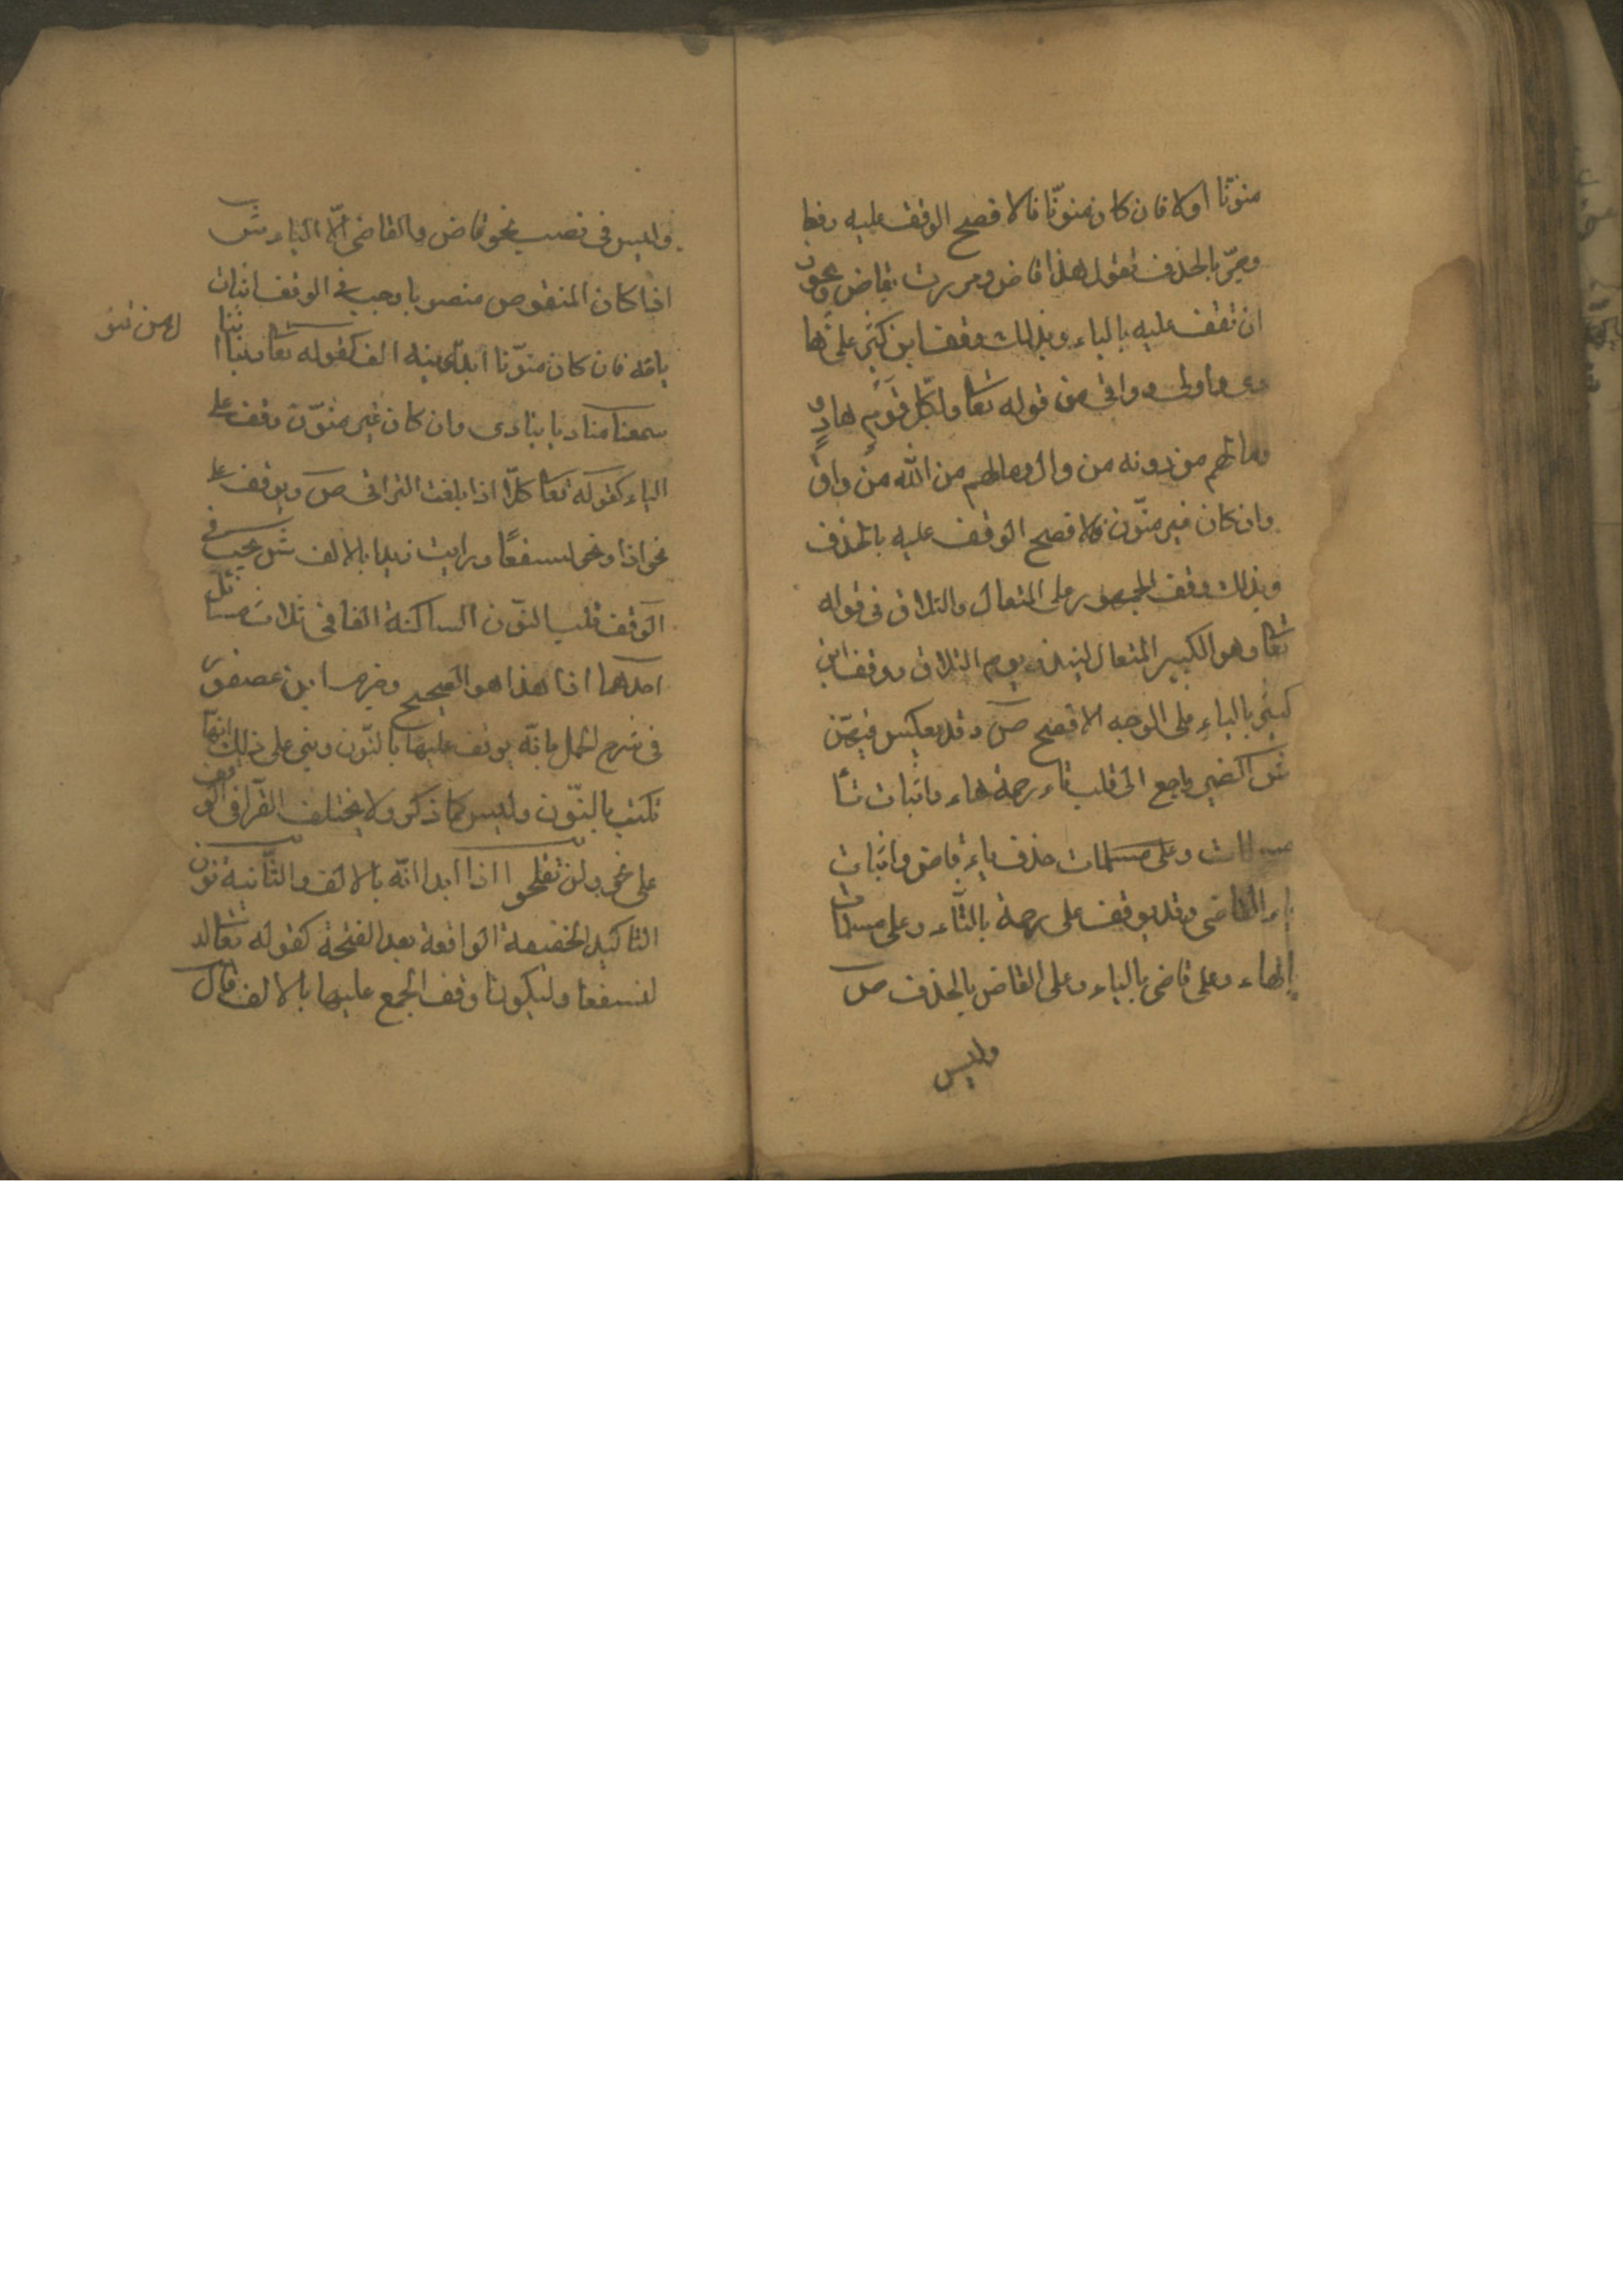 منوّنا اولا فان كان منونّا فالافصح الوقف عليه رفعا
وجرّا بالحذف تقول هذا قاض ومررت بقاض ويجوز
ان تقف عليه بالياء وبذلك وقف ابن كثير على ها
دى ووالى وواقى من قوله تعا ولكل قوم هادٍ
وما لهم من دونه من وال وما لهم من الله من واق
وان كان غير منوّن فالافصح الوقف عليه بالحذف
وبذلك وقف الجمهور على المتعال والتلاق فى قوله
تعا وهو الكبير المتعال لينذر يوم التلاق ووقف ابن
كثير بالياء على الوجه الافصح ص وقد يعكس فيهنّ
ش الضمير راجع الى قلب تاء رحمة هاء واثبات تا
مسلمات وعلى مسلمات حذف ياء قاض واثبات
ياء القاضى وقد يوقف على رحمة بالتّاء وعلى مسلمات
بالهاء وعلى قاضى بالياء وعلى القاض بالحذف ص
وليس
وليس فى نصب نحو قاض والقاضى الّا الياء ش
اذا كان المنقوص منصوبا وجب فى الوقف اثبات
يائه فان كان منوّنا ابدل من تنوينه الف كقوله تعا ربنا اننا
سمعنا مناديا ينادى وان كان غير منوّن وقف على
الياء كقوله تعا كلّا اذا بلغت التراقى ص ويوقف على
نحو اذا ونحو لنسفعًا ورايت زيدا بالالف ش يجب فى
الوقف قلب النوّن الساكنة الفا فى ثلاث مسائل
احدها اذا هذا هو الصحيح وجزم ابن عصفور
فى شرح الجمل بانّه يوقف عليها بالنّون وبنى على ذلك انهّا
تكتب بالنّون وليس كما ذكر ولا يختلف القرآ فى الوقف
على نحو ولن تفلحوا اذا ابدا انّه بالالف والثّانية نون
التاكيد الخفيفة الواقعة بعد الفتحة كقوله تعالى
لنسفعا وليكونا وقف الجمع عليها بالالف قال